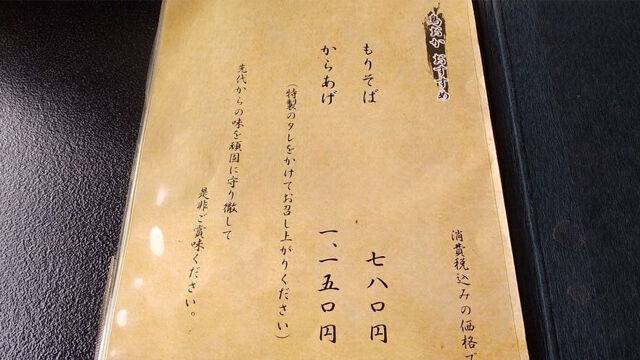 鳥おか おすすめ
消費税込みの価格で
もりそば 七八〇円
からあげ 一、一五〇円
(特製のタレをかけてお召し上がりください)
先代からの味を頑固に守り徹して
是非ご賞味ください。